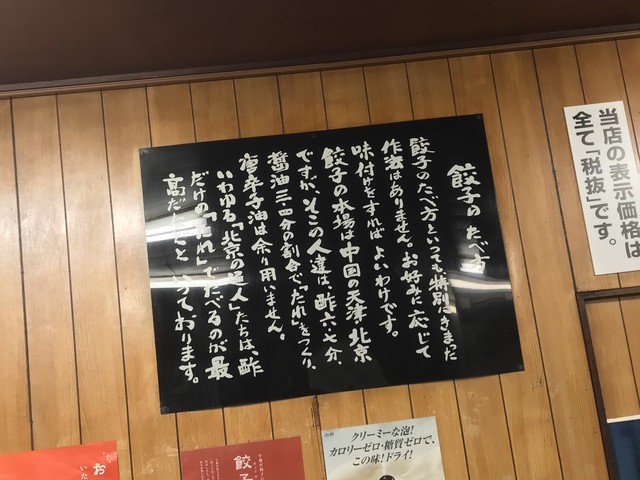 餃子の たべ方
餃子のたべ方といっても特別にきまった
作法はありません。お好みに応じて
味付けをすればよいわけです。
餃子の本場は中国の天津、北京
ですが、そこの人達は、酢六〜七分、
醤油三〜四分の割合で「たれ」をつくり、
唐辛子油は余り用いません。
いわゆる「北京の通人」たちは、酢
だけの「たれ」でたべるのが最
高だ――といっております。
当店の表示価格は
全て「税抜」です。
お
いた
餃子
クリーミーな泡!
カロリーゼロ・糖質ゼロで、
この味!ドライ!